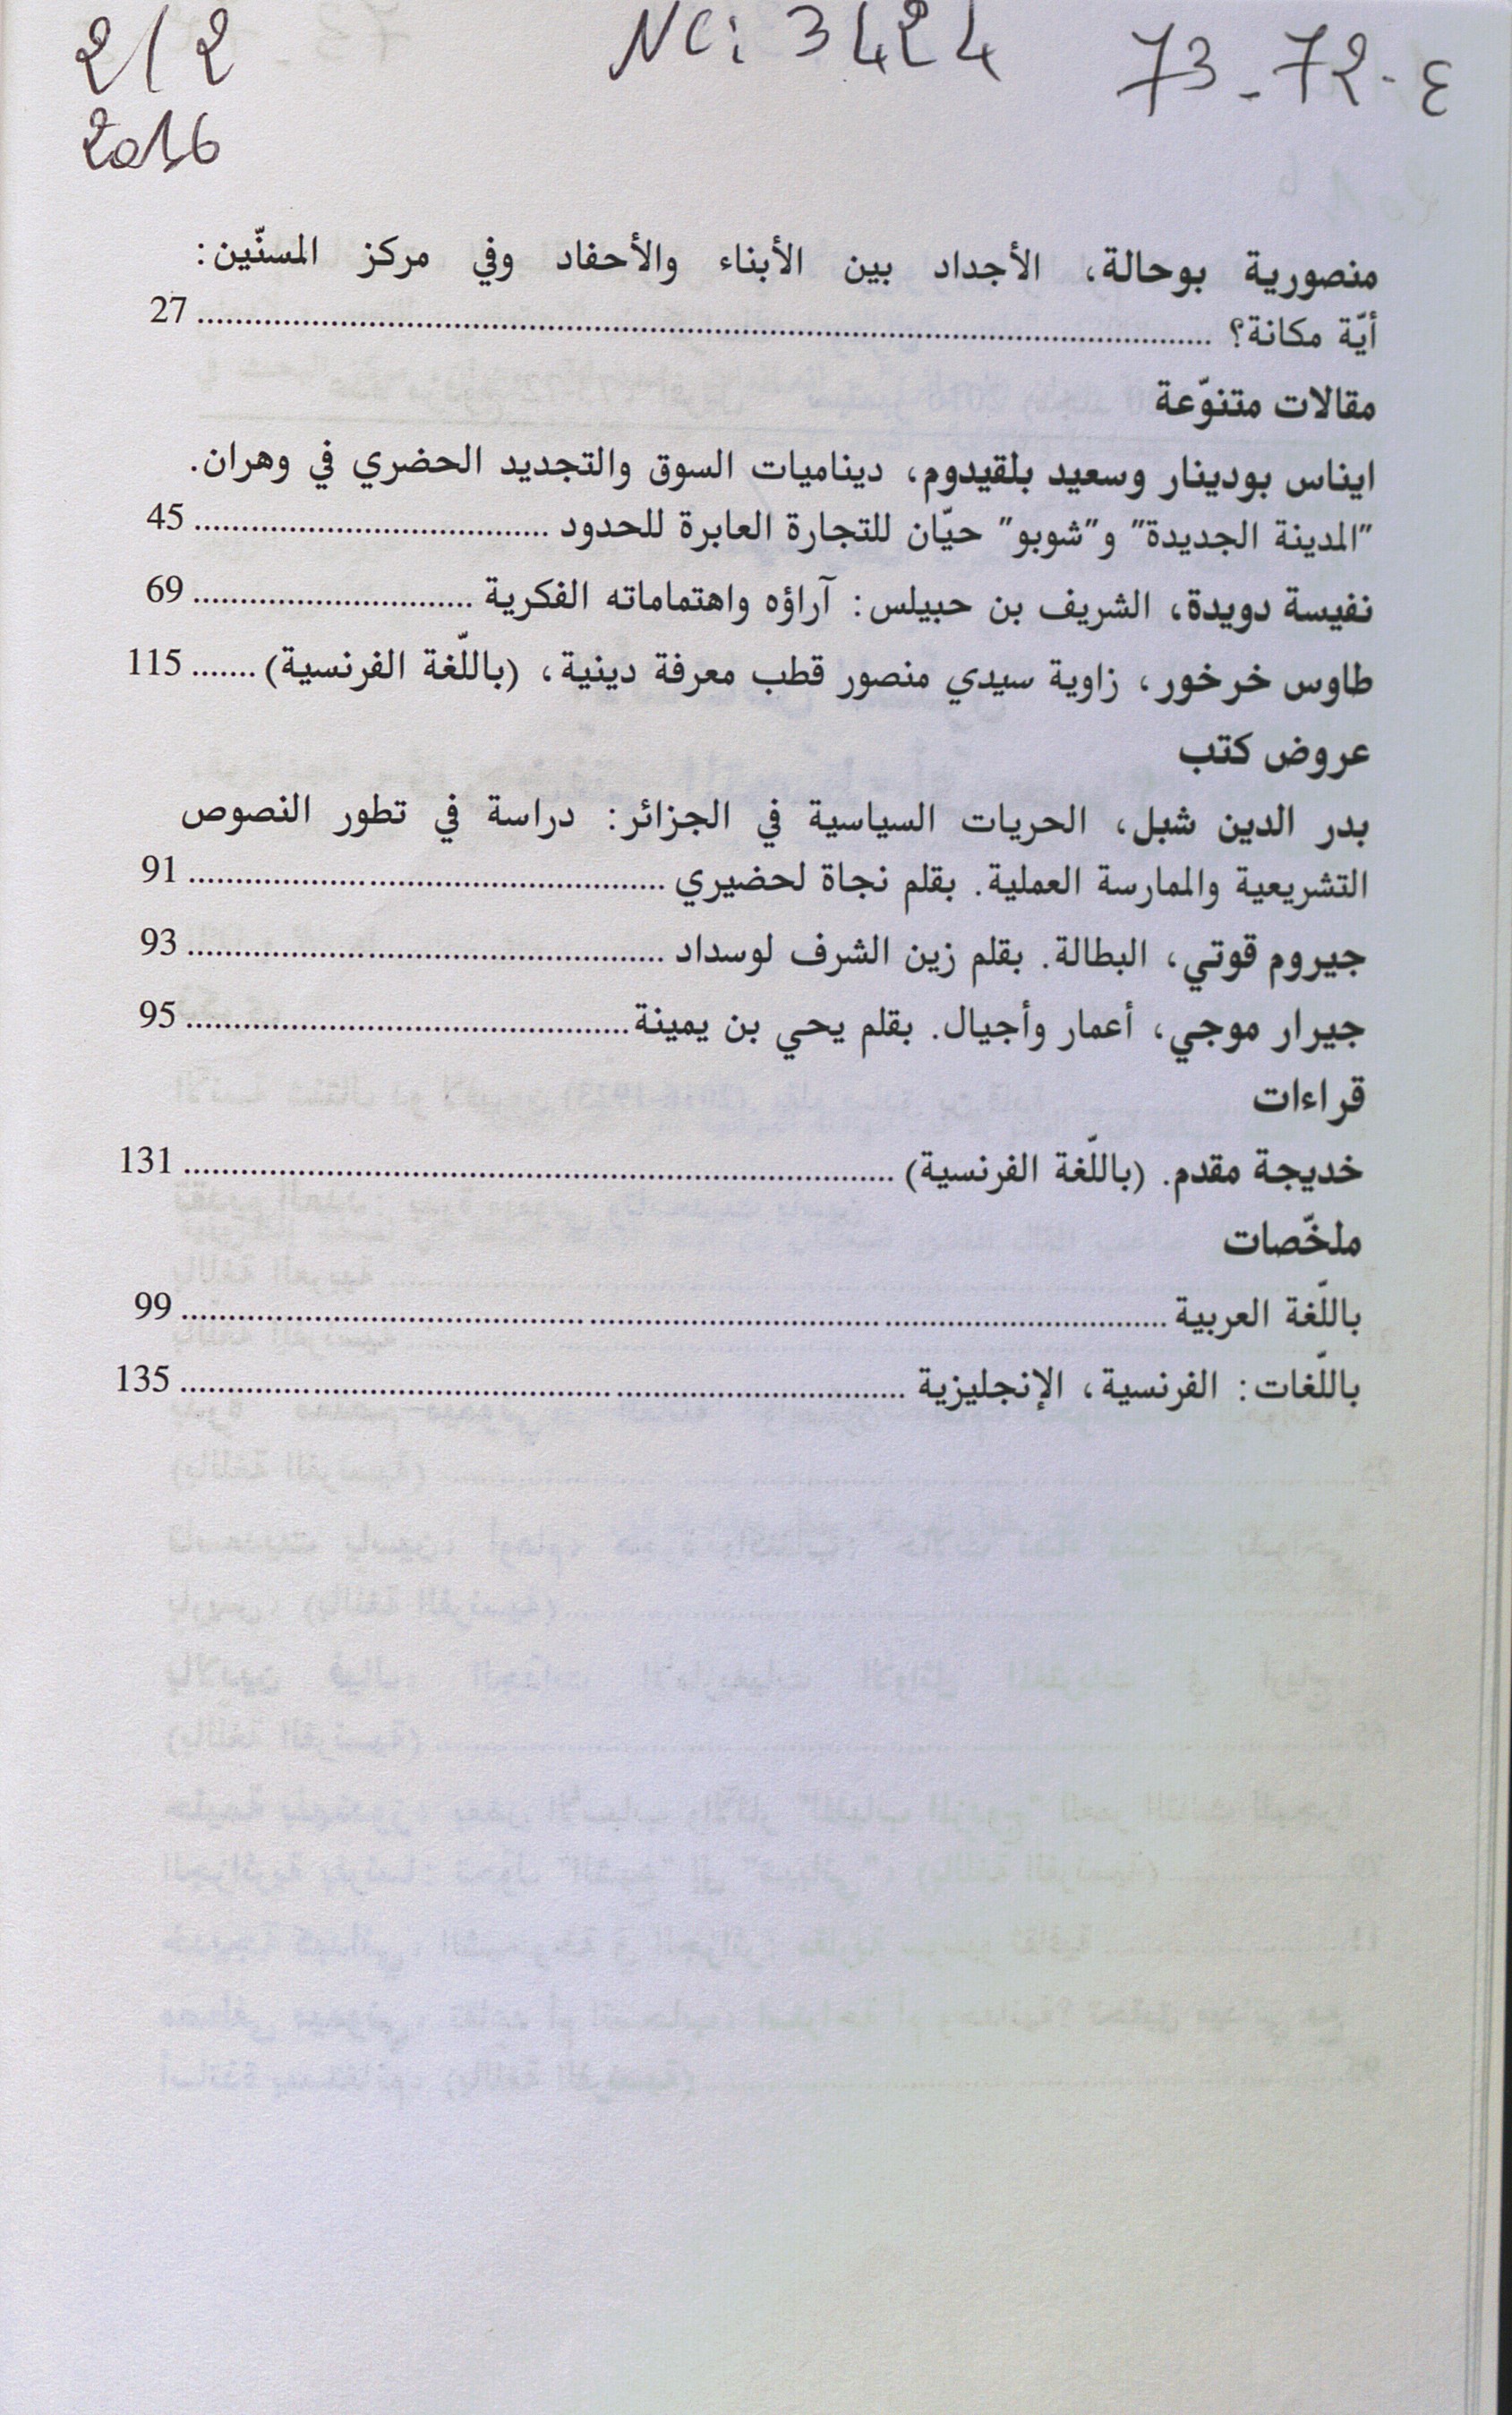 2/2 NCi 3424 73-72-ع
2016
منصورية بوحالة، الأجداد بين الأبناء والأحفاد وفي مركز المسنّين:
أيّة مكانة؟ ........ 27
مقالات متنوّعة
ايناس بودينار وسعيد بلقيدوم، ديناميات السوق والتجديد الحضري في وهران.
"المدينة الجديدة" و"شوبو" حيّان للتجارة العابرة للحدود ........ 45
نفيسة دويدة، الشريف بن حبيلس: آراؤه واهتماماته الفكرية ........ 69
طاوس خرخور، زاوية سيدي منصور قطب معرفة دينية، (باللّغة الفرنسية) ....... 115
عروض كتب
بدر الدين شبل، الحريات السياسية في الجزائر: دراسة في تطور النصوص
التشريعية والممارسة العملية. بقلم نجاة لحضيري ........ 91
جيروم قوتي، البطالة. بقلم زين الشرف لوسداد ........ 93
جيرار موجي، أعمار وأجيال. بقلم يحي بن يمينة ........ 95
قراءات
خديجة مقدم. (باللّغة الفرنسية) ........ 131
ملخّصات
باللّغة العربية ........ 99
باللّغات: الفرنسية، الإنجليزية ........ 135